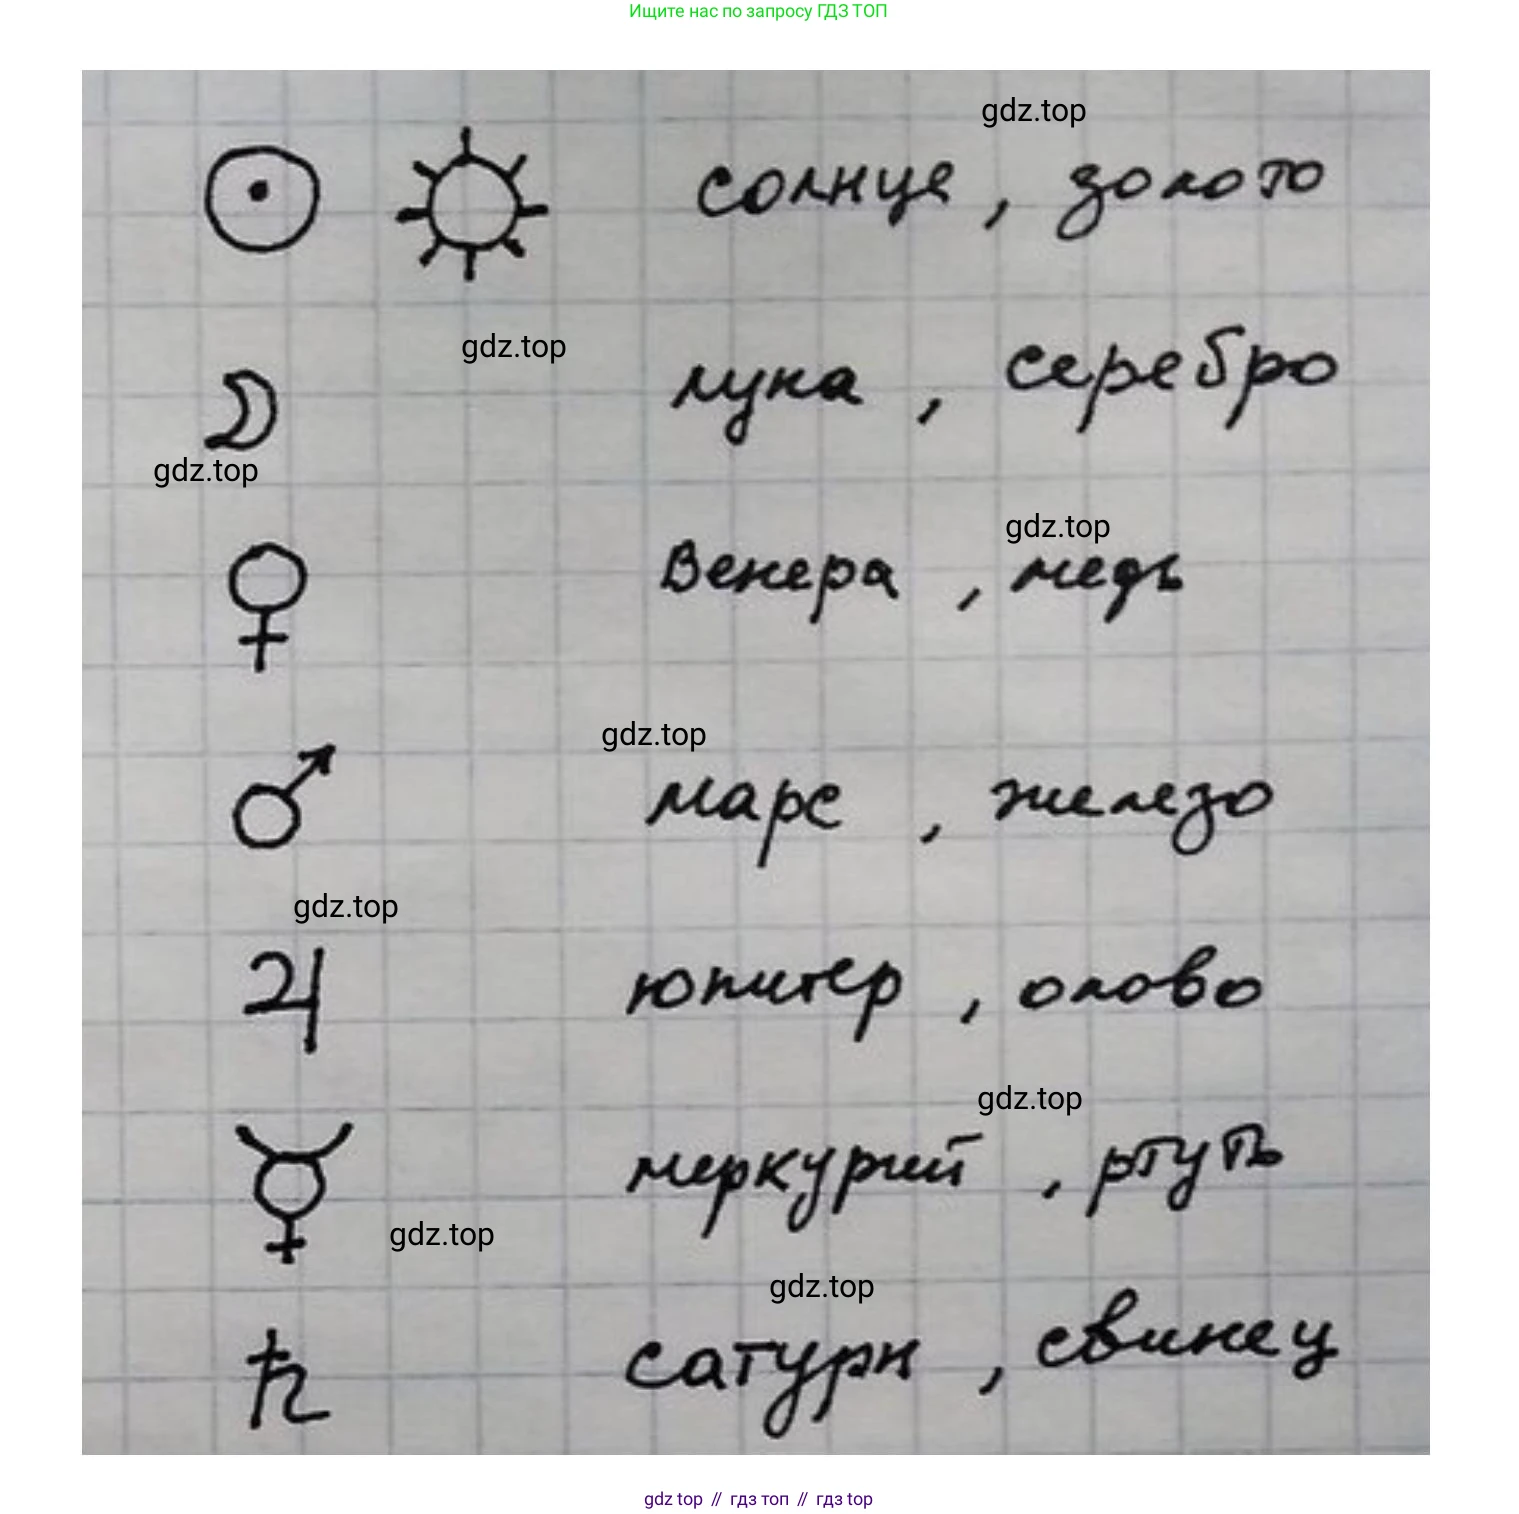 Ищите нас по запросу ГДЗ ТОП
gdz.top
☉ ☼ солнце, золото
gdz.top
☽ луна, серебро
gdz.top
gdz.top
♀ Венера, медь
gdz.top
♂ марс, железо
gdz.top
♃ юпитер, олово
gdz.top
☿ меркурий, ртуть
gdz.top
gdz.top
♄ сатурн, свинец
gdz top // гдз топ // гдз top